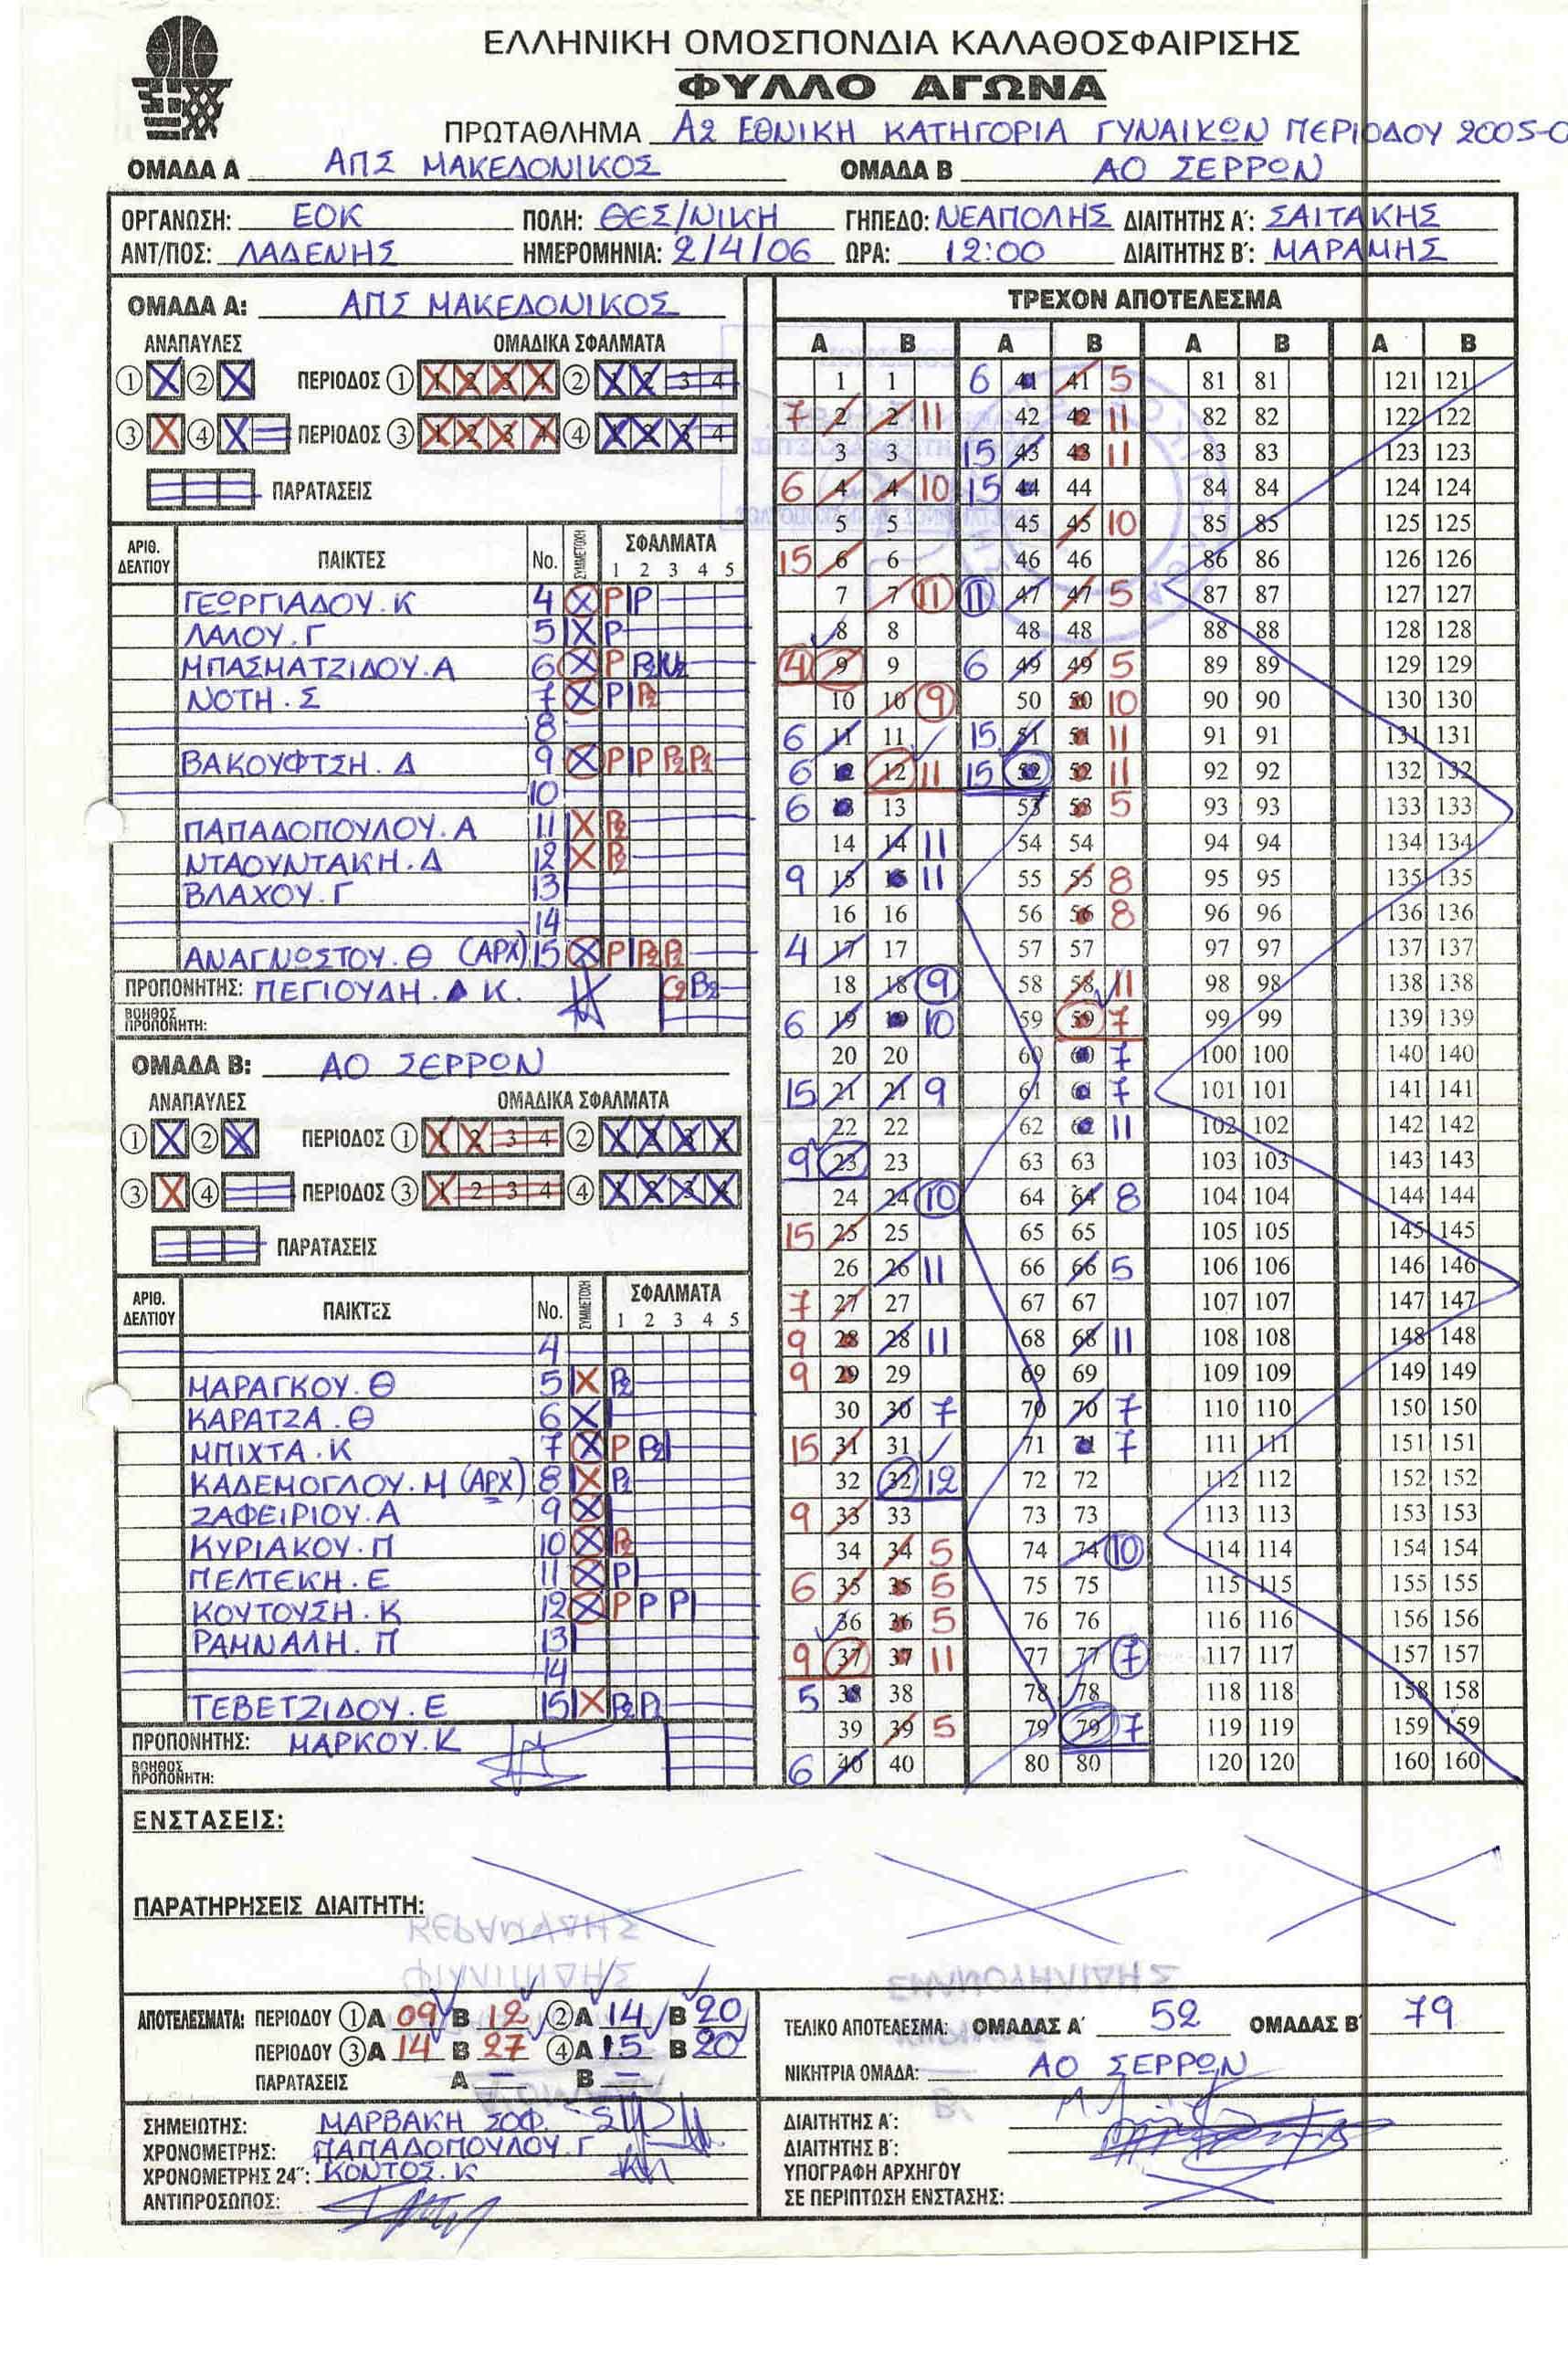 ΕΛΛΗΝΙΚΗ ΟΜΟΣΠΟΝΔΙΑ ΚΑΛΑΘΟΣΦΑΙΡΙΣΗΣ
ΦΥΛΛΟ ΑΓΩΝΑ
ΠΡΩΤΑΘΛΗΜΑ Α2 ΕΘΝΙΚΗ ΚΑΤΗΓΟΡΙΑ ΓΥΝΑΙΚΩΝ ΠΕΡΙΟΔΟΥ 2005-0
ΟΜΑΔΑ Α ΑΠΣ ΜΑΚΕΔΟΝΙΚΟΣ ΟΜΑΔΑ Β ΑΟ ΣΕΡΡΩΝ
ΟΡΓΑΝΩΣΗ: ΕΟΚ ΠΟΛΗ: ΘΕΣ/ΝΙΚΗ ΓΗΠΕΔΟ: ΝΕΑΠΟΛΗΣ ΔΙΑΙΤΗΤΗΣ Α΄: ΣΑΙΤΑΚΗΣ
ΑΝΤ/ΠΟΣ: ΛΑΔΕΝΗΣ ΗΜΕΡΟΜΗΝΙΑ: 2/4/06 ΩΡΑ: 12:00 ΔΙΑΙΤΗΤΗΣ Β΄: ΜΑΡΑΜΗΣ
ΟΜΑΔΑ Α: ΑΠΣ ΜΑΚΕΔΟΝΙΚΟΣ
ΑΝΑΠΑΥΛΕΣ ΟΜΑΔΙΚΑ ΣΦΑΛΜΑΤΑ
① X ② X ΠΕΡΙΟΔΟΣ ① 1 2 3 4 ② 1 2 3 4
③ X ④ X ΠΕΡΙΟΔΟΣ ③ 1 2 3 4 ④ 1 2 3 4
ΠΑΡΑΤΑΣΕΙΣ
ΑΡΙΘ. ΔΕΛΤΙΟΥ ΠΑΙΚΤΕΣ No. ΣΥΜΜΕΤΟΧΗ ΣΦΑΛΜΑΤΑ
1 2 3 4 5
ΓΕΩΡΓΙΑΔΟΥ.Κ 4 X P P
ΛΑΛΟΥ.Γ 5 X P
ΜΠΑΣΜΑΤΖΙΔΟΥ.Α 6 X P P2 U2
ΝΟΤΗ.Σ 7 X P P2
8
ΒΑΚΟΥΦΤΣΗ.Δ 9 X P P P2 P1
10
ΠΑΠΑΔΟΠΟΥΛΟΥ.Α 11 X P2
ΝΤΑΟΥΝΤΑΚΗ.Δ 12 X P2
ΒΛΑΧΟΥ.Γ 13
14
ΑΝΑΓΝΩΣΤΟΥ.Θ (ΑΡΧ) 15 X P P2 P2
ΠΡΟΠΟΝΗΤΗΣ: ΠΕΓΙΟΥΔΗ. Κ. C2 B2
ΒΟΗΘΟΣ ΠΡΟΠΟΝΗΤΗ:
ΟΜΑΔΑ Β: ΑΟ ΣΕΡΡΩΝ
ΑΝΑΠΑΥΛΕΣ ΟΜΑΔΙΚΑ ΣΦΑΛΜΑΤΑ
① X ② X ΠΕΡΙΟΔΟΣ ① 1 2 3 4 ② 1 2 3 4
③ X ④ ΠΕΡΙΟΔΟΣ ③ 1 2 3 4 ④ 1 2 3 4
ΠΑΡΑΤΑΣΕΙΣ
ΑΡΙΘ. ΔΕΛΤΙΟΥ ΠΑΙΚΤΕΣ No. ΣΥΜΜΕΤΟΧΗ ΣΦΑΛΜΑΤΑ
1 2 3 4 5
4
ΜΑΡΑΓΚΟΥ.Θ 5 X P2
ΚΑΡΑΤΖΑ.Θ 6 X
ΜΠΙΧΤΑ.Κ 7 X P P2
ΚΑΔΕΜΟΓΛΟΥ.Μ (ΑΡΧ) 8 X P1
ΖΑΦΕΙΡΙΟΥ.Α 9 X
ΚΥΡΙΑΚΟΥ.Π 10 X P2
ΠΕΛΤΕΚΗ.Ε 11 X P
ΚΟΥΤΟΥΣΗ.Κ 12 X P P P
ΡΑΜΝΑΛΗ.Π 13
14
ΤΕΒΕΤΖΙΔΟΥ.Ε 15 X P2 P1
ΠΡΟΠΟΝΗΤΗΣ: ΜΑΡΚΟΥ.Κ
ΒΟΗΘΟΣ ΠΡΟΠΟΝΗΤΗ:
ΤΡΕΧΟΝ ΑΠΟΤΕΛΕΣΜΑ
Α Β Α Β Α Β Α Β
1 1 6 41 41 5 81 81 121 121
7 2 2 11 42 42 11 82 82 122 122
3 3 15 43 43 11 83 83 123 123
6 4 4 10 15 44 44 84 84 124 124
5 5 45 45 10 85 85 125 125
15 6 6 46 46 86 86 126 126
7 7 11 11 47 47 5 87 87 127 127
8 8 48 48 88 88 128 128
4 9 9 6 49 49 5 89 89 129 129
10 10 9 50 50 10 90 90 130 130
6 11 11 15 51 51 11 91 91 131 131
6 12 12 11 15 52 52 11 92 92 132 132
6 13 13 53 53 5 93 93 133 133
14 14 11 54 54 94 94 134 134
9 15 15 11 55 55 8 95 95 135 135
16 16 56 56 8 96 96 136 136
4 17 17 57 57 97 97 137 137
18 18 9 58 58 11 98 98 138 138
6 19 19 10 59 59 7 99 99 139 139
20 20 60 60 7 100 100 140 140
15 21 21 9 61 61 7 101 101 141 141
22 22 62 62 11 102 102 142 142
9 23 23 63 63 103 103 143 143
24 24 10 64 64 8 104 104 144 144
15 25 25 65 65 105 105 145 145
26 26 11 66 66 5 106 106 146 146
7 27 27 67 67 107 107 147 147
9 28 28 11 68 68 11 108 108 148 148
9 29 29 69 69 109 109 149 149
30 30 7 70 70 7 110 110 150 150
15 31 31 71 71 7 111 111 151 151
32 32 12 72 72 112 112 152 152
9 33 33 73 73 113 113 153 153
34 34 5 74 74 10 114 114 154 154
6 35 35 5 75 75 115 115 155 155
36 36 5 76 76 116 116 156 156
9 37 37 11 77 77 7 117 117 157 157
5 38 38 78 78 118 118 158 158
39 39 5 79 79 7 119 119 159 159
6 40 40 80 80 120 120 160 160
ΕΝΣΤΑΣΕΙΣ:
ΠΑΡΑΤΗΡΗΣΕΙΣ ΔΙΑΙΤΗΤΗ:
ΑΠΟΤΕΛΕΣΜΑΤΑ: ΠΕΡΙΟΔΟΥ ① Α 09 Β 12 ② Α 14 Β 20
ΠΕΡΙΟΔΟΥ ③ Α 14 Β 27 ④ Α 15 Β 20
ΠΑΡΑΤΑΣΕΙΣ Α – Β –
ΤΕΛΙΚΟ ΑΠΟΤΕΛΕΣΜΑ: ΟΜΑΔΑΣ Α΄ 52 ΟΜΑΔΑΣ Β΄ 79
ΝΙΚΗΤΡΙΑ ΟΜΑΔΑ: ΑΟ ΣΕΡΡΩΝ
ΣΗΜΕΙΩΤΗΣ: ΜΑΡΒΑΚΗ ΣΟΦ.
ΧΡΟΝΟΜΕΤΡΗΣ: ΠΑΠΑΔΟΠΟΥΛΟΥ.Γ
ΧΡΟΝΟΜΕΤΡΗΣ 24΄΄: ΚΟΝΤΟΣ.Κ
ΑΝΤΙΠΡΟΣΩΠΟΣ:
ΔΙΑΙΤΗΤΗΣ Α΄:
ΔΙΑΙΤΗΤΗΣ Β΄:
ΥΠΟΓΡΑΦΗ ΑΡΧΗΓΟΥ
ΣΕ ΠΕΡΙΠΤΩΣΗ ΕΝΣΤΑΣΗΣ: